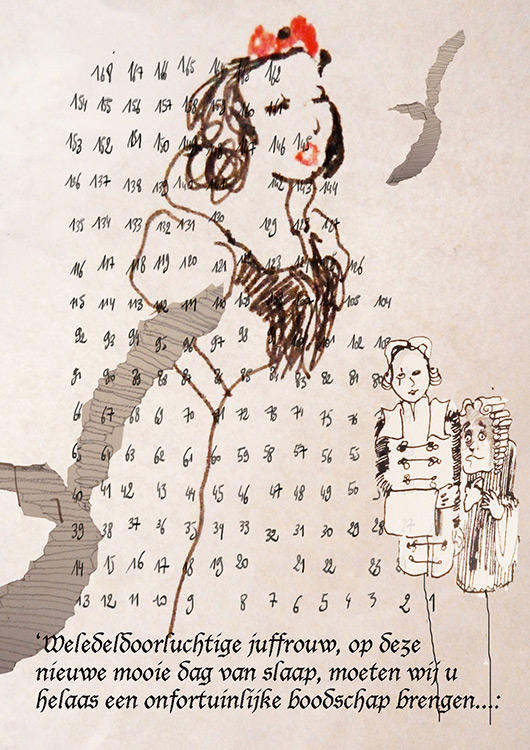 168 167 166 165 162
154 155 156 157 158 159 160
153 152 151 150 146 145
136 137 138 139 142 143 144
135 134 133 132 131 130 129 128 127
116 117 118 119 120 121 123 126
115 114 113 112 111 110 104
92 93 94 95 96 97 98
72 73 74 75 76
65 64 63 62 61 60 59 58 57 56 55
40 41 42 43 44 45 46 47 48 49 50
39 38 37 36 35 34 33 32 31 30 29 28 27
14 15 16 17 18 19 20 21 22
13 12 11 10 9 8 7 6 5 4 3 2 1
‘Weledeldoorluchtige juffrouw, op deze
nieuwe mooie dag van slaap, moeten wij u
helaas een onfortuinlijke boodschap brengen...: